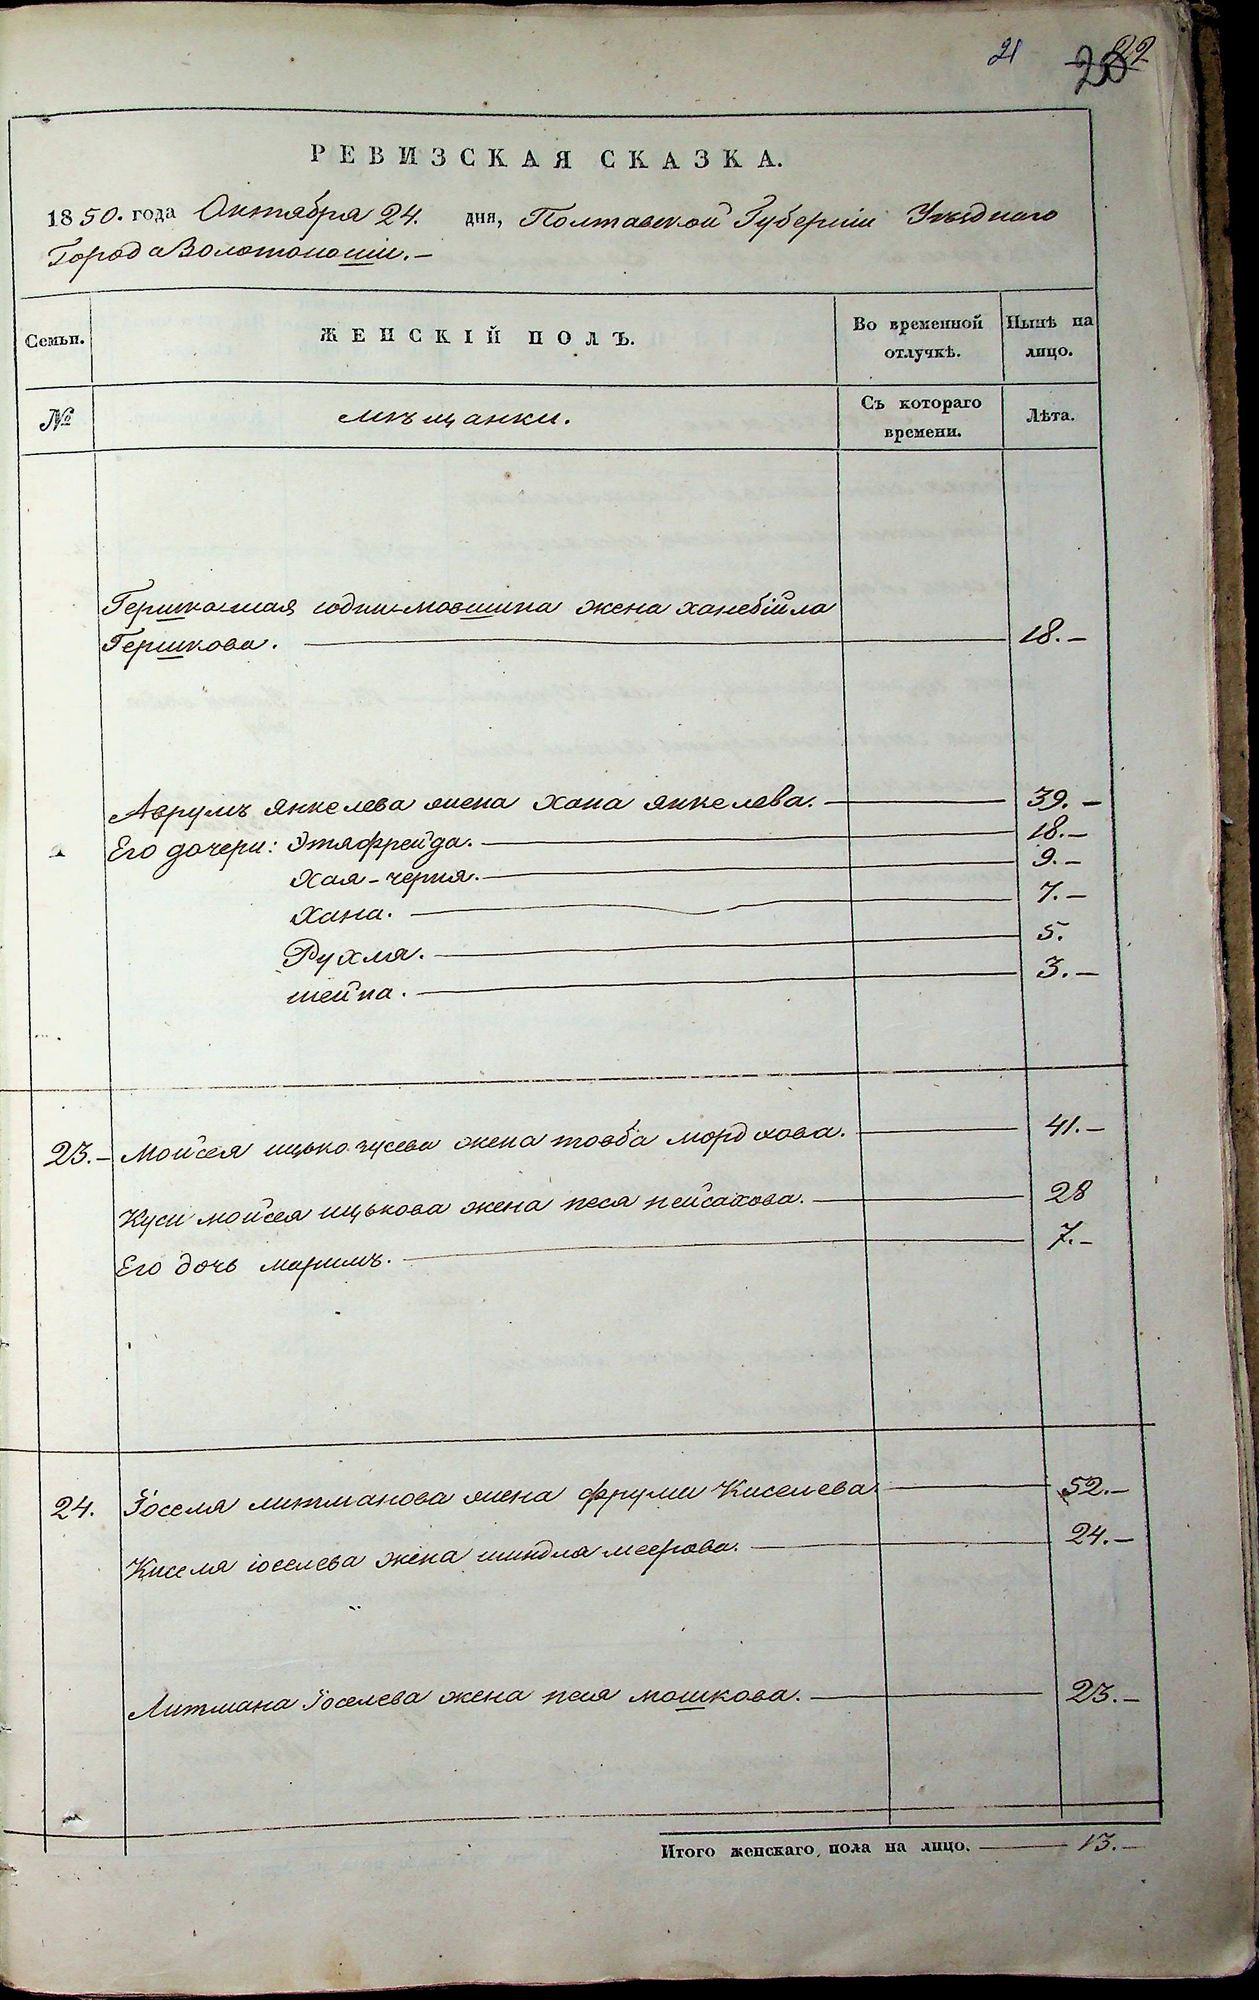 21 20 22
РЕВИЗСКАЯ СКАЗКА.
1850. года Октября 24. дня, Полтавской Губерніи Уѣзднаго
Города Золотоноши.–
Семьи. ЖЕНСКІЙ ПОЛЪ. Во временной отлучкѣ. Нынѣ на лицо.
№ мѣщанки. Съ котораго времени. Лѣта.
жена ханебійла
Гершкова. 18.–
Аврумъ янкелева жена хана янкелева. 39.–
Его дочери: Этяфрейда. 18.–
Хая-черня. 9.–
Хана. 7.–
Рухля. 5.
шейна. 3.–
23.– Мойсея ицько гусева жена товба мордхова. 41.–
Куси мойсея ицькова жена песя пейсахова. 28
Его дочь маримъ. 7.–
24. Іоселя литманова жена фрума Киселева 52.–
Киселя іоселева жена шиндля меерова. 24.–
Литмана Іоселева жена песя мошкова. 23.–
Итого женскаго пола на лицо. 13.–